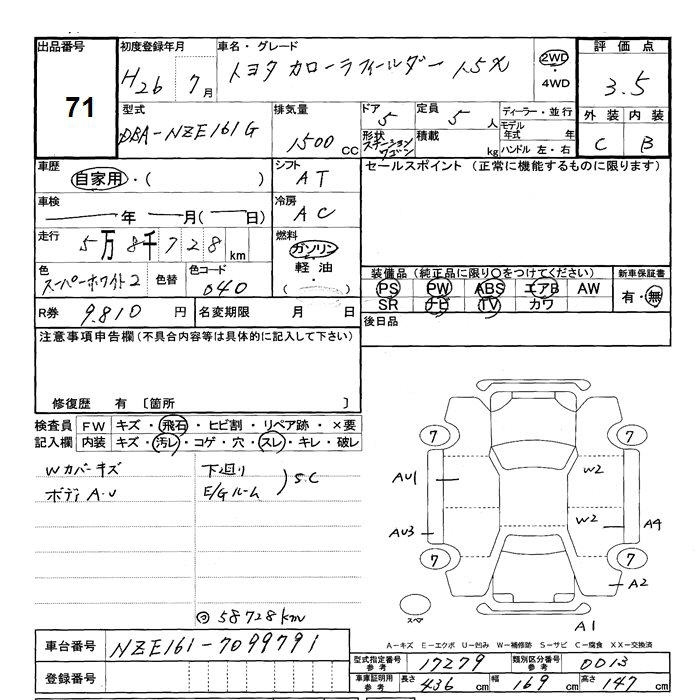 出品番号
71
初度登録年月
H26 7月
車名・グレード
トヨタ カローラフィールダー 1.5X
2WD
・
4WD
評価点
3.5
外装 内装
C B
型式
DBA-NZE161G
排気量
1500 cc
ドア
5
形状
ステーションワゴン
定員
5 人
積載
kg
ディーラー・並行
モデル年式 年
ハンドル 左・右
車歴
自家用・( )
シフト
AT
車検
年 月( 日)
冷房
AC
走行
5万8千728 km
燃料
ガソリン
・
軽油
・
( )
色
スーパーホワイト2
色替
色コード
040
R券 9.810 円
名変期限 月 日
セールスポイント (正常に機能するものに限ります)
装備品 (純正品に限り○をつけてください)
PS PW ABS エアB AW
SR ナビ TV カワ
新車保証書
有・無
後日品
注意事項申告欄(不具合内容等は具体的に記入して下さい)
修復歴 有 〔箇所 〕
検査員記入欄
FW キズ・飛石・ヒビ割・リペア跡・×要
内装 キズ・汚レ・コゲ・穴・スレ・キレ・破レ
Wカバーキズ
ボディA.U
下廻り
E/Gルーム
S.C
58728km
7 7
AU1 W2
AU3 W2 A4
7 7
A2
スペア
A1
A-キズ E-エクボ U-凹み W-補修跡 S-サビ C-腐食 XX-交換済
車台番号 NZE161-7099791
登録番号
型式指定番号 参考 17279
類別区分番号 参考 0013
車庫証明用 参考 長さ 436 cm 幅 169 cm 高さ 147 cm